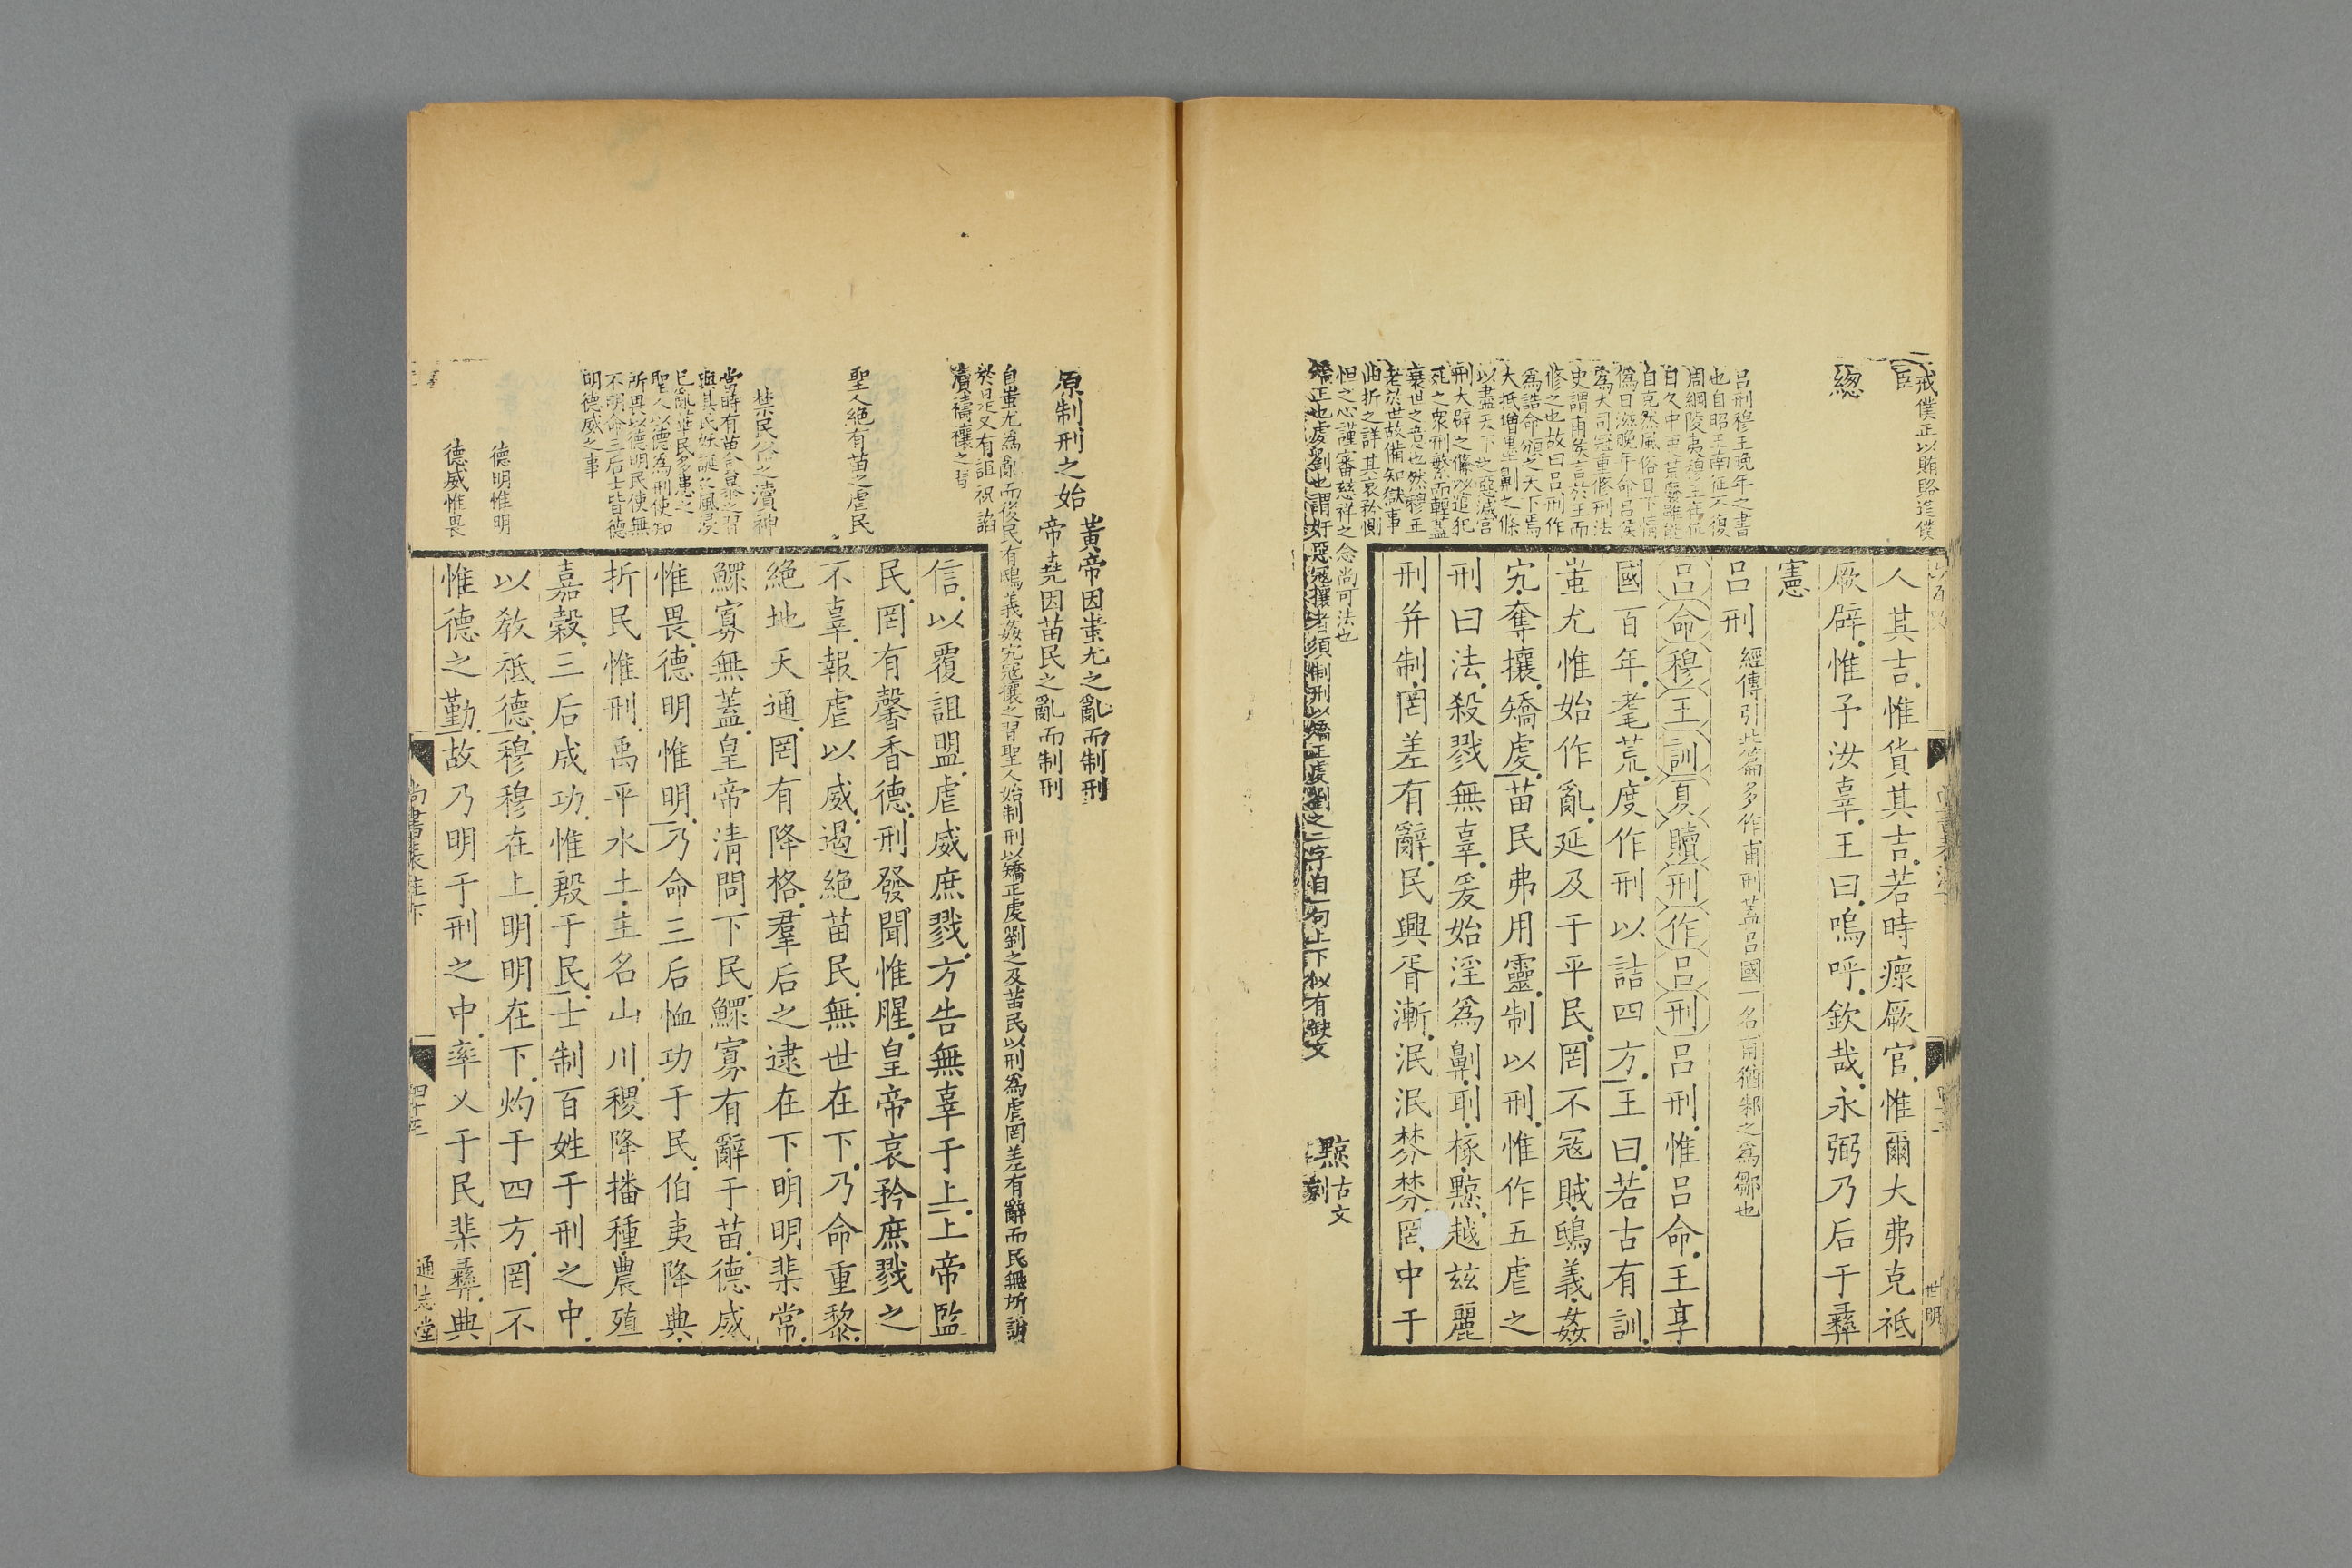 戒僕正以賄賂進僕
臣
總
人其吉惟貨其吉若時瘝厥官惟爾大弗克祗
厥辟惟予汝辜王曰嗚呼欽哉永弼乃后于彝
憲
呂刑
經傳引此篇多作甫刑蓋呂國一名甫猶邾之爲鄒也
呂刑穆王晚年之書
也自昭王南征不復
周綱陵夷穆王在位
自克然風俗日下情
僞日滋晚年命呂侯
爲大司冦重修刑法
史謂甫侯言於王而
修之也故曰呂刑作
爲誥命頒之天下焉
大抵增墨劓之條
以盡天下之惡減宮
刑大辟之條以逭犯
死之衆刑繁而輕蓋
衰世之意也然穆王
老於世故備知獄事
曲折之詳其哀矜惻
怛之心謹審慈祥之念尚可法也
呂命穆王訓夏贖刑作呂刑呂刑惟呂命王享
國百年耄荒度作刑以詰四方王曰若古有訓
蚩尤惟始作亂延及于平民罔不冦賊鴟義姦
宄奪攘矯虔苗民弗用靈制以刑惟作五虐之
刑曰法殺戮無辜爰始淫爲劓刵椓黥越兹麗
刑并制罔差有辭民興胥漸泯泯棼棼罔中于
矯正也虔劉也謂奸惡冦攘者須制刑以矯正虔劉之二字自一句上下似有缺文
黥古文
世明
原制刑之始
黃帝因蚩尤之亂而制刑
帝堯因苗民之亂而制刑
自蚩尤爲亂而後民有鴟義姦宄冦攘之習聖人始制刑以矯正虔劉之及苗民以刑爲虐罔差有辭而民無所訴
於是又有詛祝謟
瀆禱禳之習
聖人絶有苗之虐民
禁民俗之瀆神
當時有苗合暴之習
與其民妖誕之風浸
已亂華民多患之
聖人以德爲刑使知
所畏以德明民使無
不明命三后士皆德
明德威之事
德明惟明
德威惟畏
信以覆詛盟虐威庶戮方告無辜于上上帝監
民罔有馨香德刑發聞惟腥皇帝哀矜庶戮之
不辜報虐以威遏絶苗民無世在下乃命重黎
絶地天通罔有降格羣后之逮在下明明棐常
鰥寡無蓋皇帝清問下民鰥寡有辭于苗德威
惟畏德明惟明乃命三后恤功于民伯夷降典
折民惟刑禹平水土主名山川稷降播種農殖
嘉穀三后成功惟殷于民士制百姓于刑之中
以敎祗德穆穆在上明明在下灼于四方罔不
惟德之勤故乃明于刑之中率乂于民棐彝典
尚書表注下
四十三
通志堂